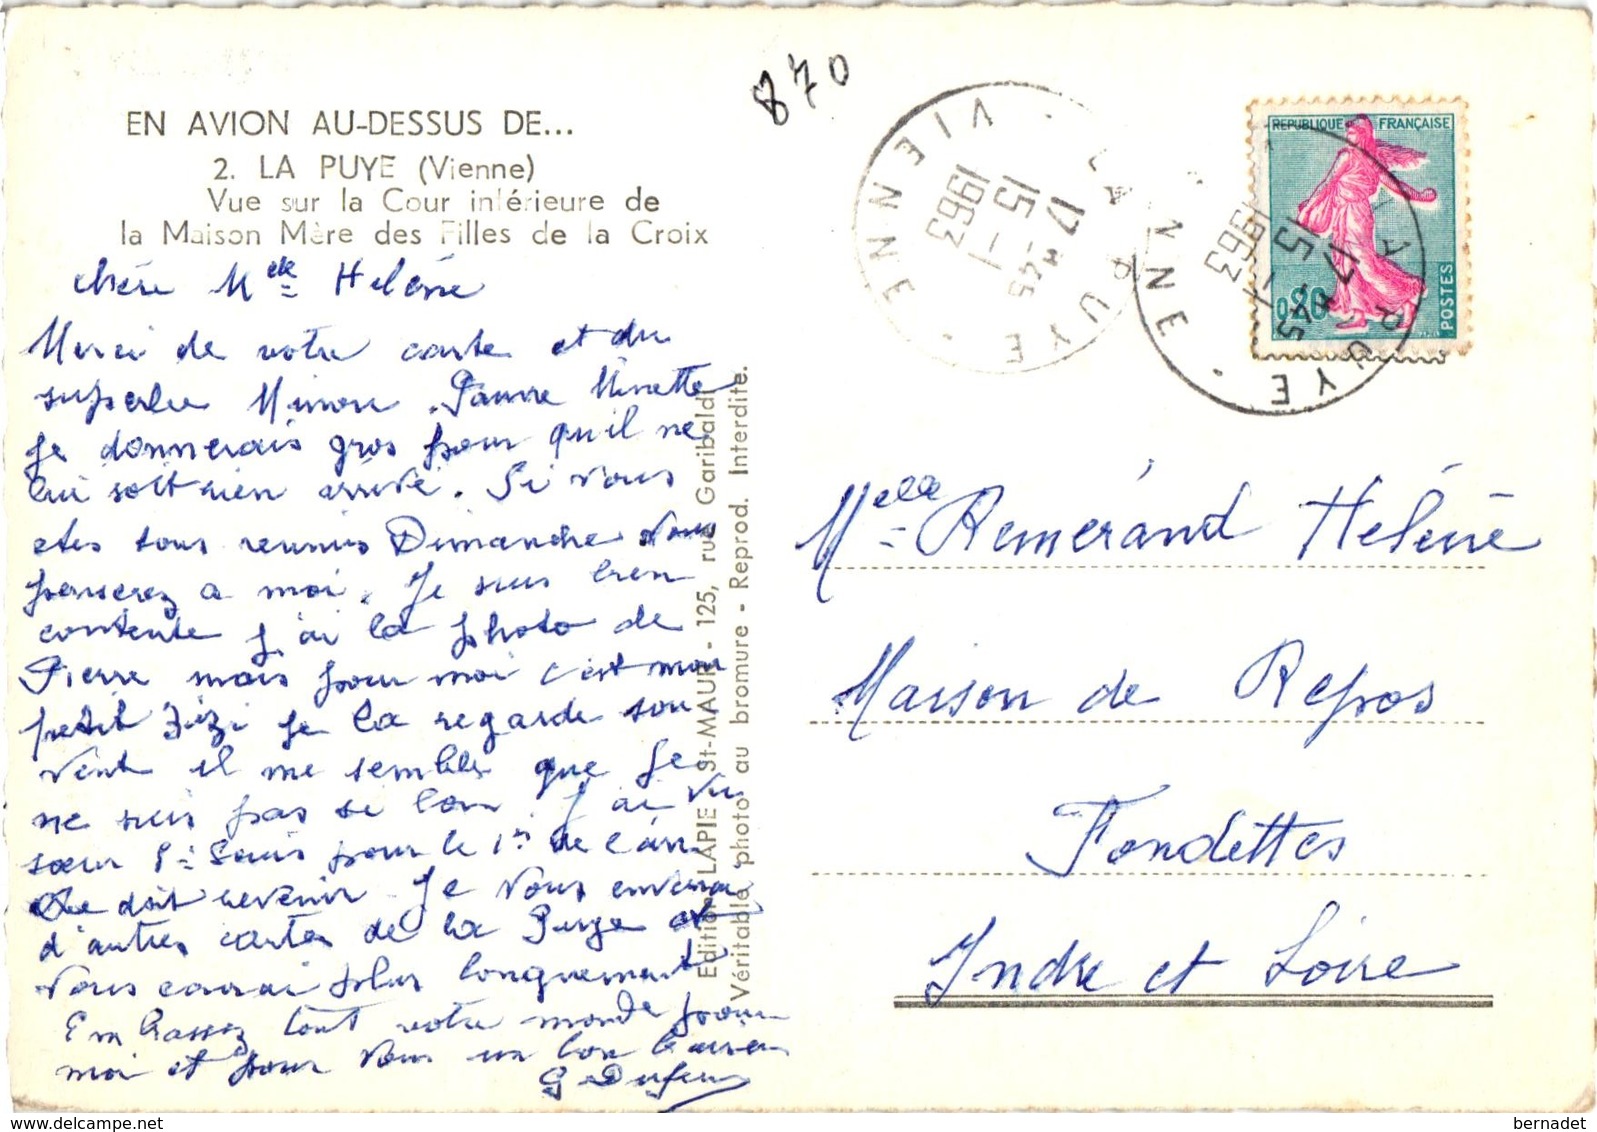 870
EN AVION AU-DESSUS DE...
2. LA PUYE (Vienne)
Vue sur la Cour intérieure de
la Maison Mère des Filles de la Croix
chère Melle Helène
Merci de votre carte et du
superbe Minou. Pauvre Minette
je donnerais gros pour qu'il ne
lui soit rien arrivé. Si vous
etes tous reunis Dimanche vous
penserez a moi. Je suis bien
contente j'ai la photo de
Pierre mais pour moi c'est mon
petit Zizi je la regarde sou
vent il me semble que je
ne suis pas si loin. J'ai vu
sœur St Louis pour le 1er de l'an
elle doit revenir. Je vous enverrai
d'autres cartes de la Puye et
vous ecrirai plus longuement
Embrassez tout votre monde pour
moi et pour vous un bon baiser
Edition LAPIE ST-MAUR - 125, rue Garibaldi
Véritable photo au bromure - Reprod. Interdite.
LA PUYE VIENNE
17 H 45
15 - 1
1963
LA PUYE VIENNE
17 H 45
15 - 1
1963
REPUBLIQUE FRANÇAISE
0,20
POSTES
Melle Remerand Helène
Maison de Repos
Fondettes
Indre et Loire
delcampe.net
bernadet